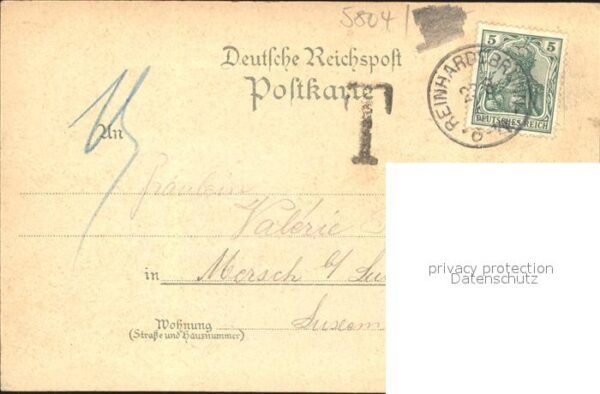 5804/
Deutsche Reichspost
Postkarte
T
5 5
DEUTSCHES REICH
REINHARDSBRUNN
An
Fräulein
Valérie
in Mersch b/ Lux
Wohnung
(Straße und Hausnummer)
Luxem
privacy protection
Datenschutz